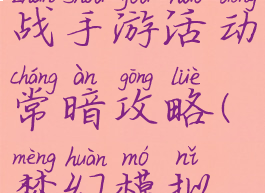 zhàn shǒu yóu huó dòng
战手游活动
cháng àn gōng lüè
常暗攻略(
mèng huàn mó nǐ
梦幻模拟